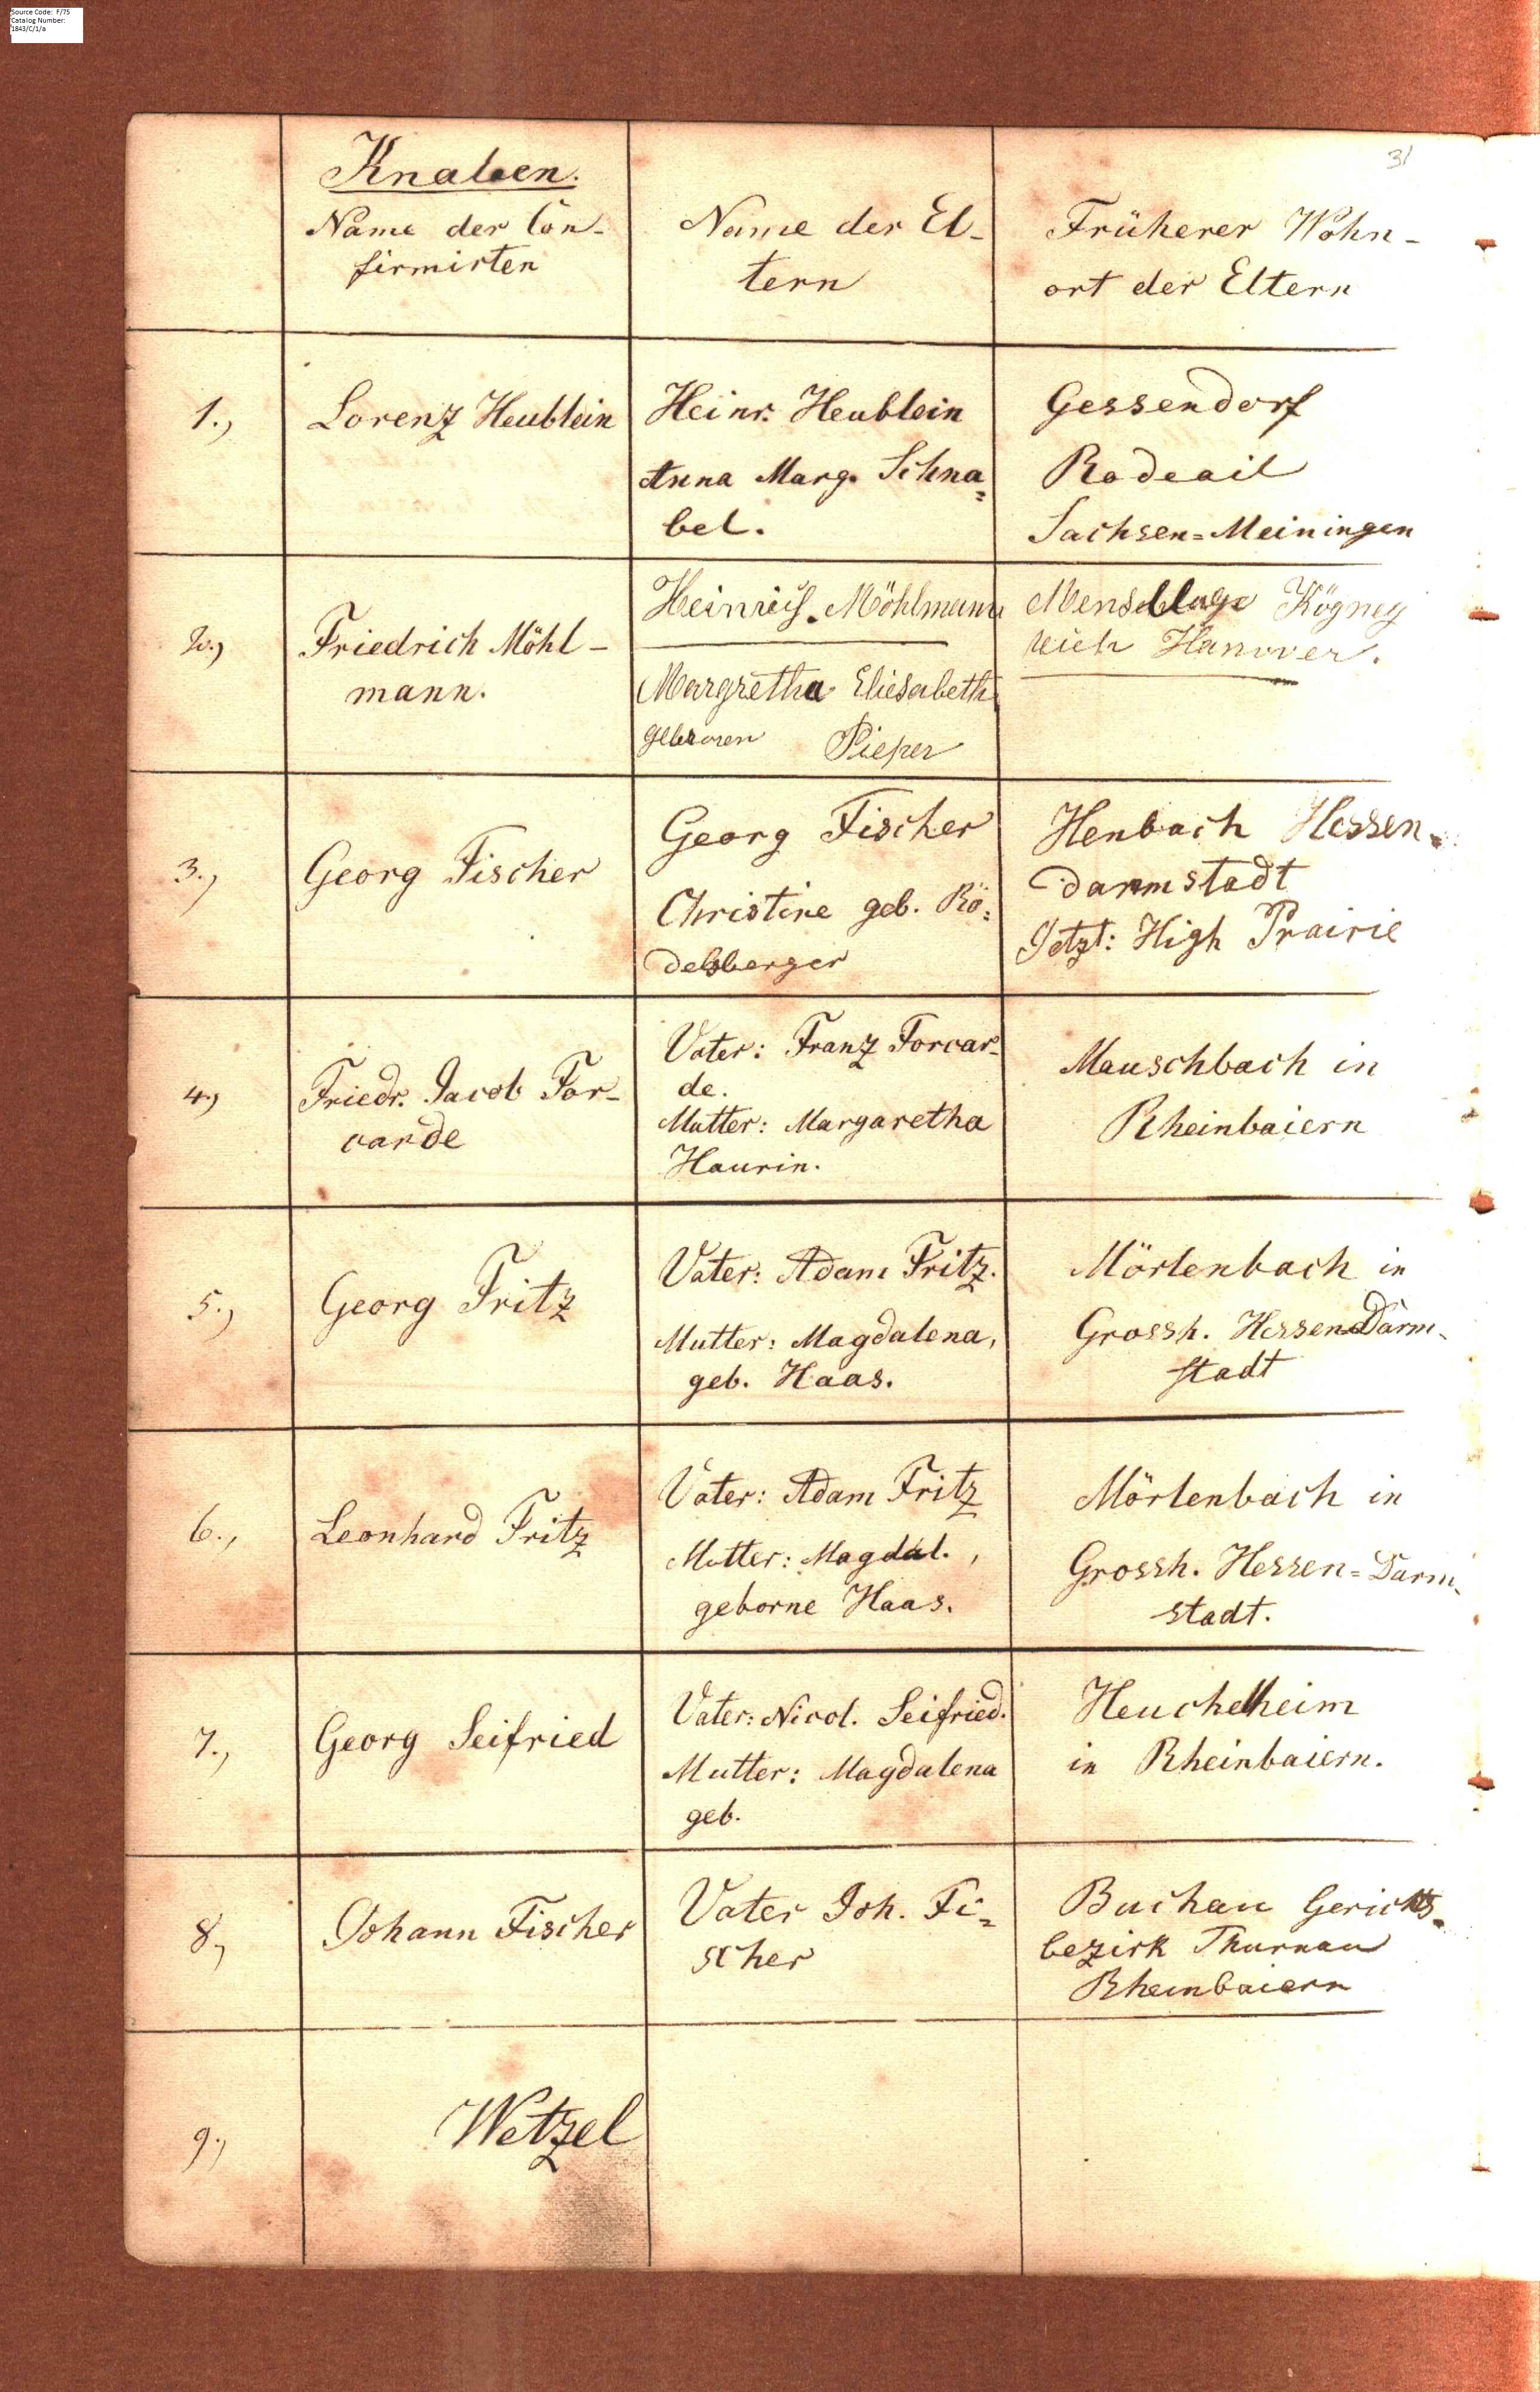 Source Code: F/75
Catalog Number:
1843/C/1/a
31
Knaben.
Name der Con-
firmirten
Name der El-
tern
Früherer Wohn-
ort der Eltern
1.,
Lorenz Heublein
Heinr. Heublein
Anna Marg. Schna=
bel.
Gessendorf
Rodeail
Sachsen=Meiningen
2.,
Friedrich Möhl-
mann.
Heinrich Möhlmann
Margretha Eliesabeth
geboren Pieper
Menslage Kögney
reich Hanover.
3.,
Georg Fischer
Georg Fischer
Christine geb. Rö=
delsberger
Henbach Hessen-
Darmstadt
Jetzt: High Prairie
4.,
Friedr. Jacob For-
carde
Vater: Franz Forcar-
de.
Mutter: Margaretha
Haurin.
Mauschbach in
Rheinbaiern
5.,
Georg Fritz
Vater: Adam Fritz.
Mutter: Magdalena,
geb. Haas.
Mörlenbach in
Grossh. Hessen=Darm-
stadt
6.,
Leonhard Fritz
Vater: Adam Fritz
Mutter: Magdal.,
geborne Haas.
Mörlenbach in
Grossh. Hessen=Darm-
stadt.
7.,
Georg Seifried
Vater: Nicol. Seifried.
Mutter: Magdalena
geb.
Heuchelheim
in Rheinbaiern.
8,
Johann Fischer
Vater Joh. Fi=
scher
Buchau Gerichts-
bezirk Thurnau
Rheinbaiern
9.,
Wetzel